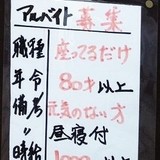 アルバイト募集
職種 座ってるだけ
年令 80才以上
備考 元気のない方
〃 昼寝付
時給 1000 以上